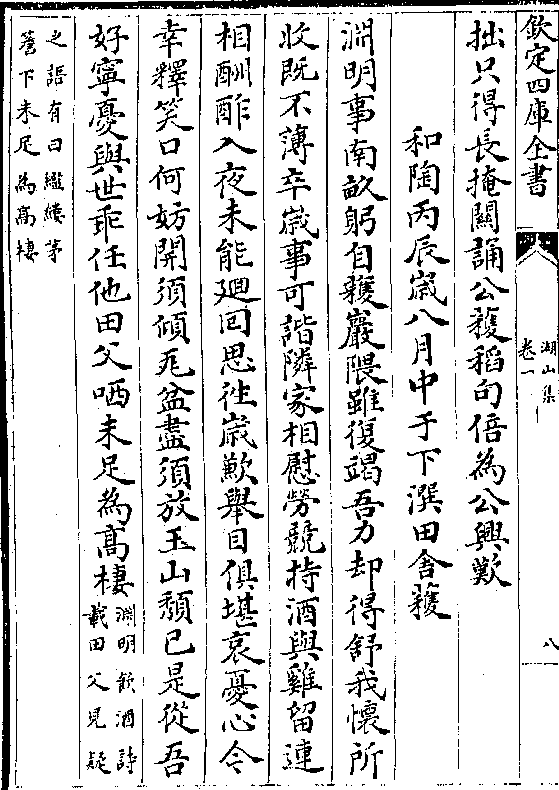 欽定四庫全書
湖山集
卷一
八
拙只得長掩關誦公穫稻句倍為公興歎
和陶丙辰歲八月中于下潠田舍穫
淵明事南畝躬自穫巖隈雖復竭吾力却得舒我懷所
收既不薄卒歲事可諧隣家相慰勞競持酒與雞留連
相酬酢入夜未能廻回思徃歲歉舉目俱堪哀憂心今
幸釋笑口何妨開須傾瓦盆盡須放玉山頹已是從吾
好寧憂與世乖任他田父哂未足為高棲淵明飲酒詩
載田父見疑
之語有曰繿縷茅
簷下未足為高棲